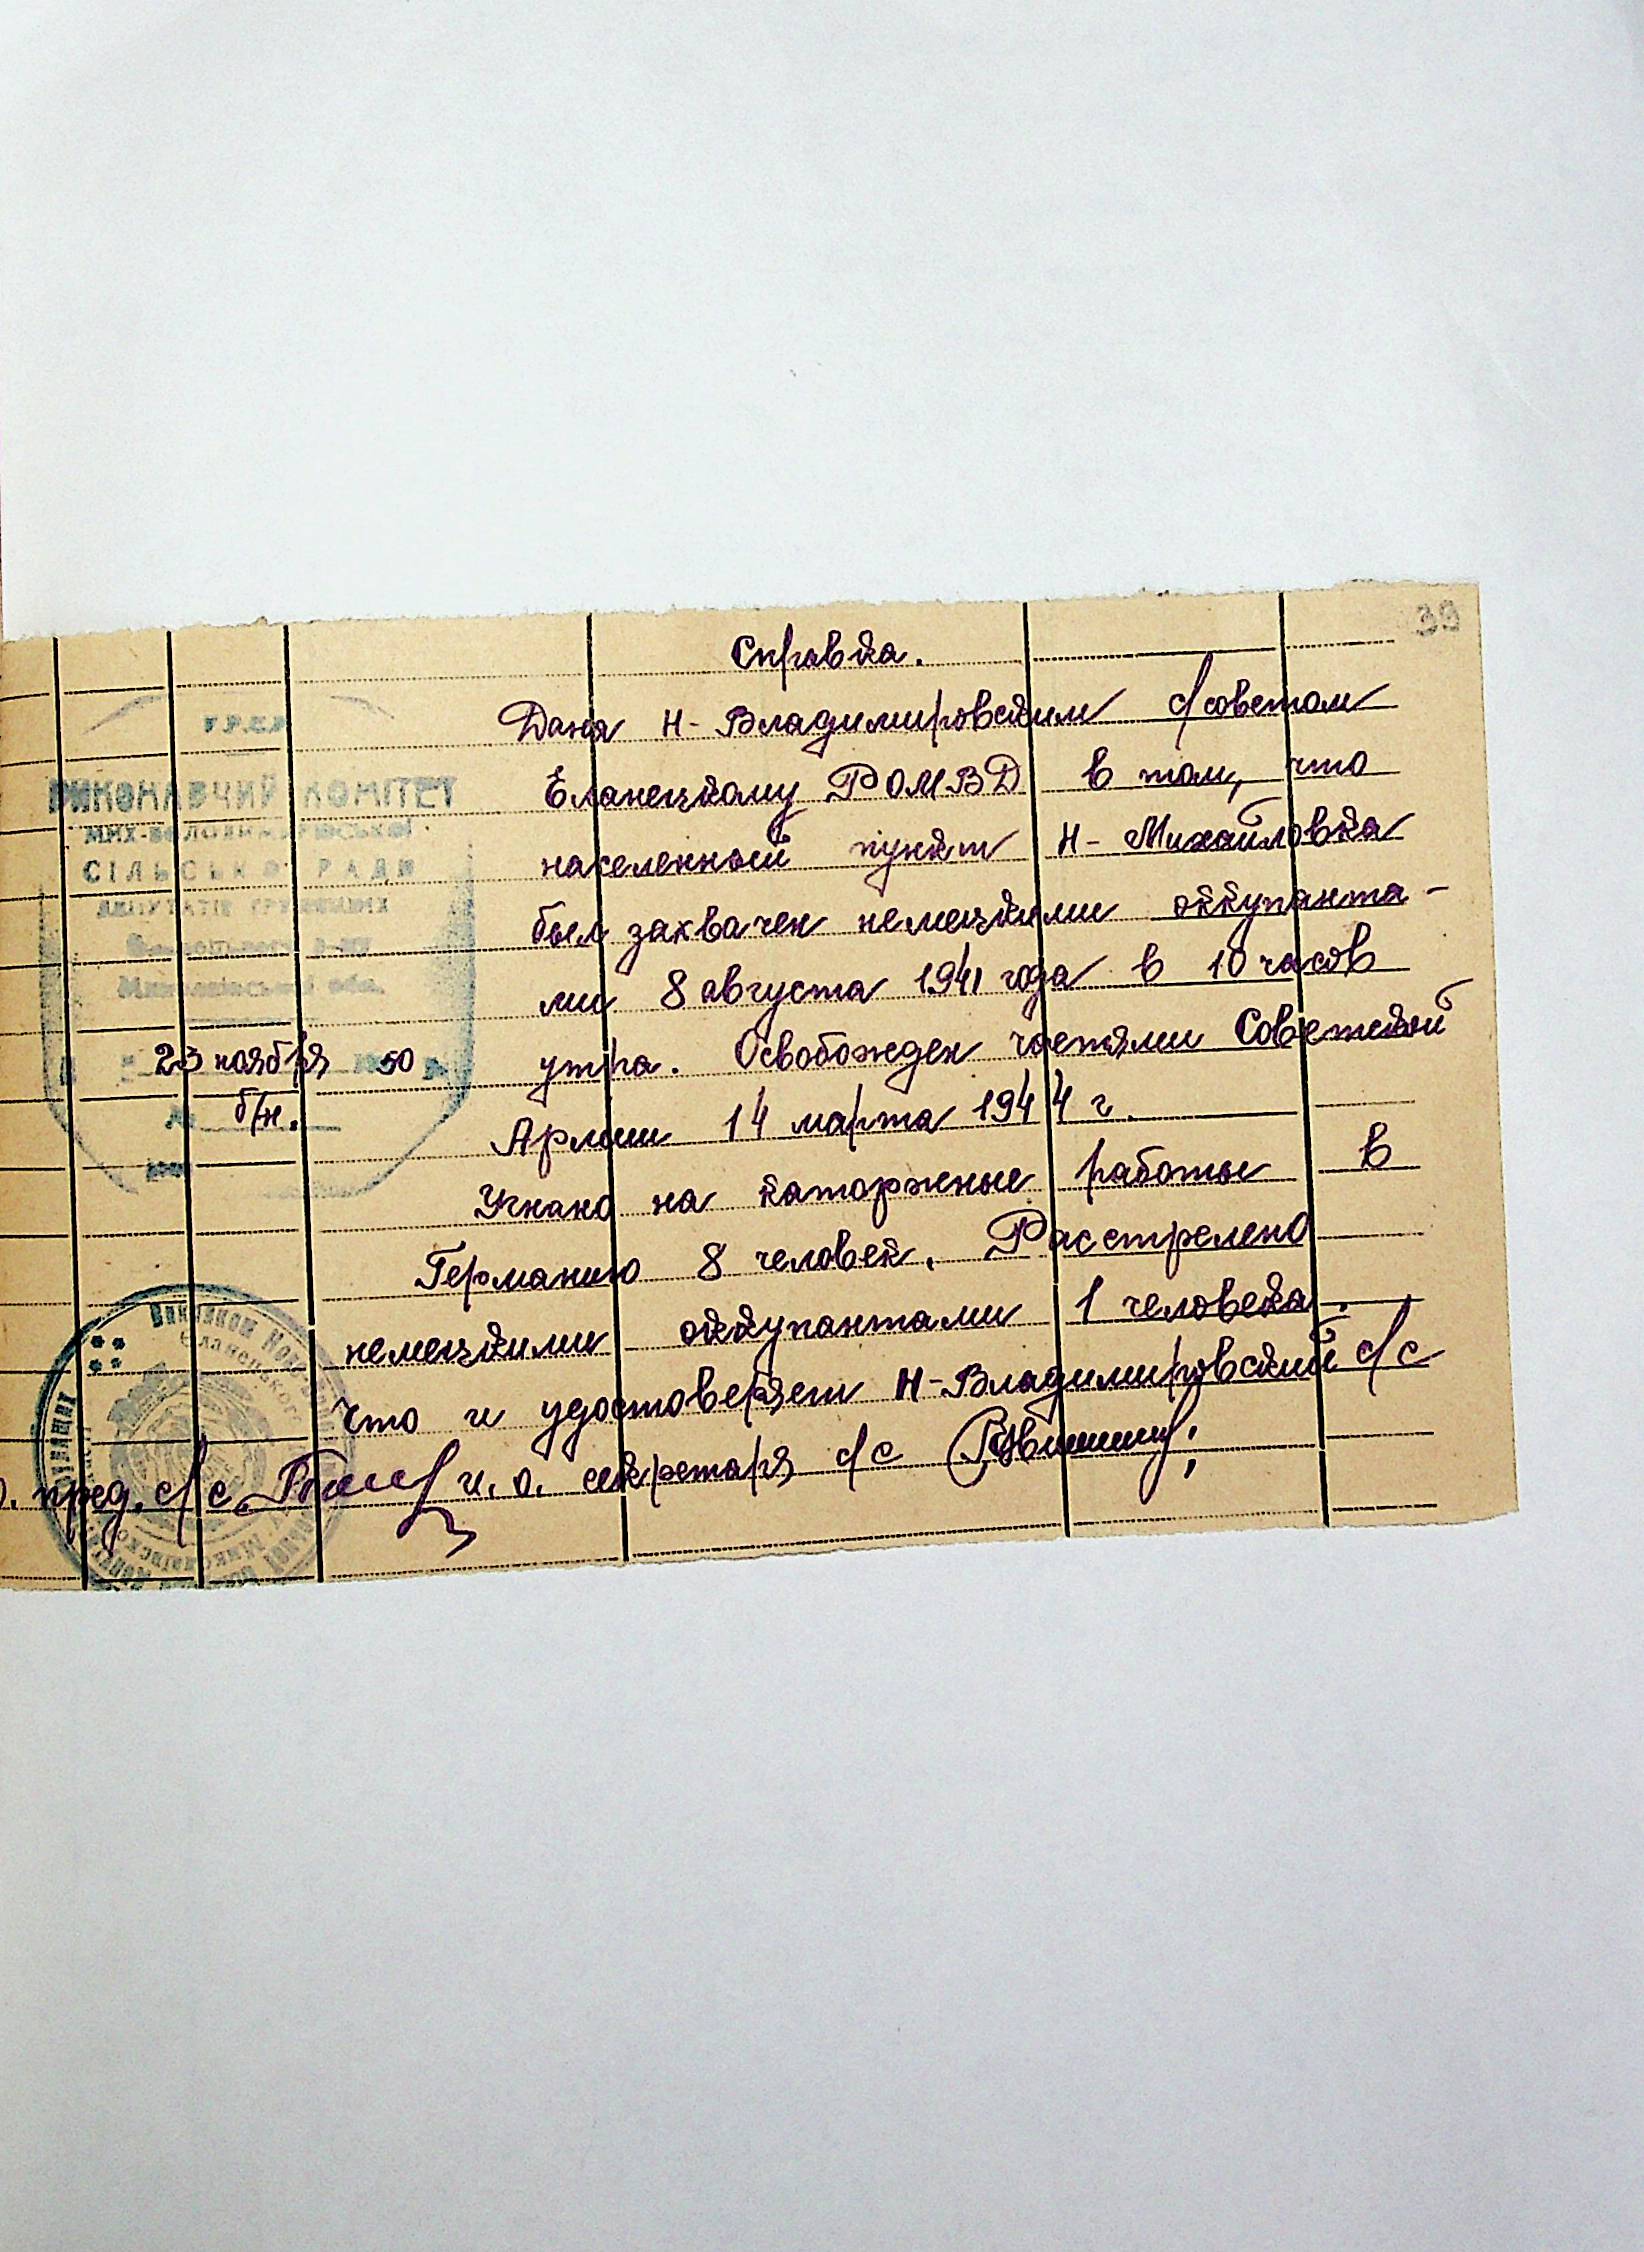 39
Справка.
Дана Н-Владимировским с/советом
Еланецкому РОМВД в том, что
населенный пункт Н-Михайловка
был захвачен немецкими оккупанта-
ми 8 августа 1941 года в 10 часов
утра. Освобожден частями Советской
Армии 14 марта 1944 г.
Угнано на каторжные работы в
Германию 8 человек. Расстрелено
немецкими оккупантами 1 человека.
Что и удостоверяет Н-Владимировский с/с
пред. с/с и. о. секретаря с/с
У.Р.С.Р.
ВИКОНАВЧИЙ КОМІТЕТ
СІЛЬСЬКОЇ РАДИ
ДЕПУТАТІВ ТРУДЯЩИХ
23 ноября 1950 р.
№ б/н.